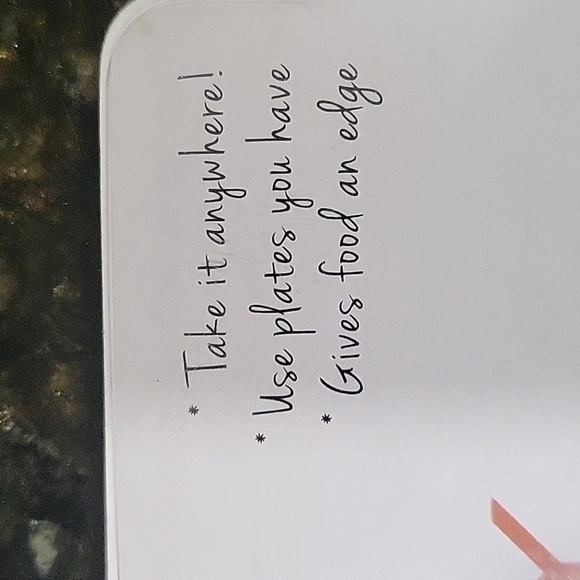 * Take it anywhere!
* Use plates you have
* Gives food an edge